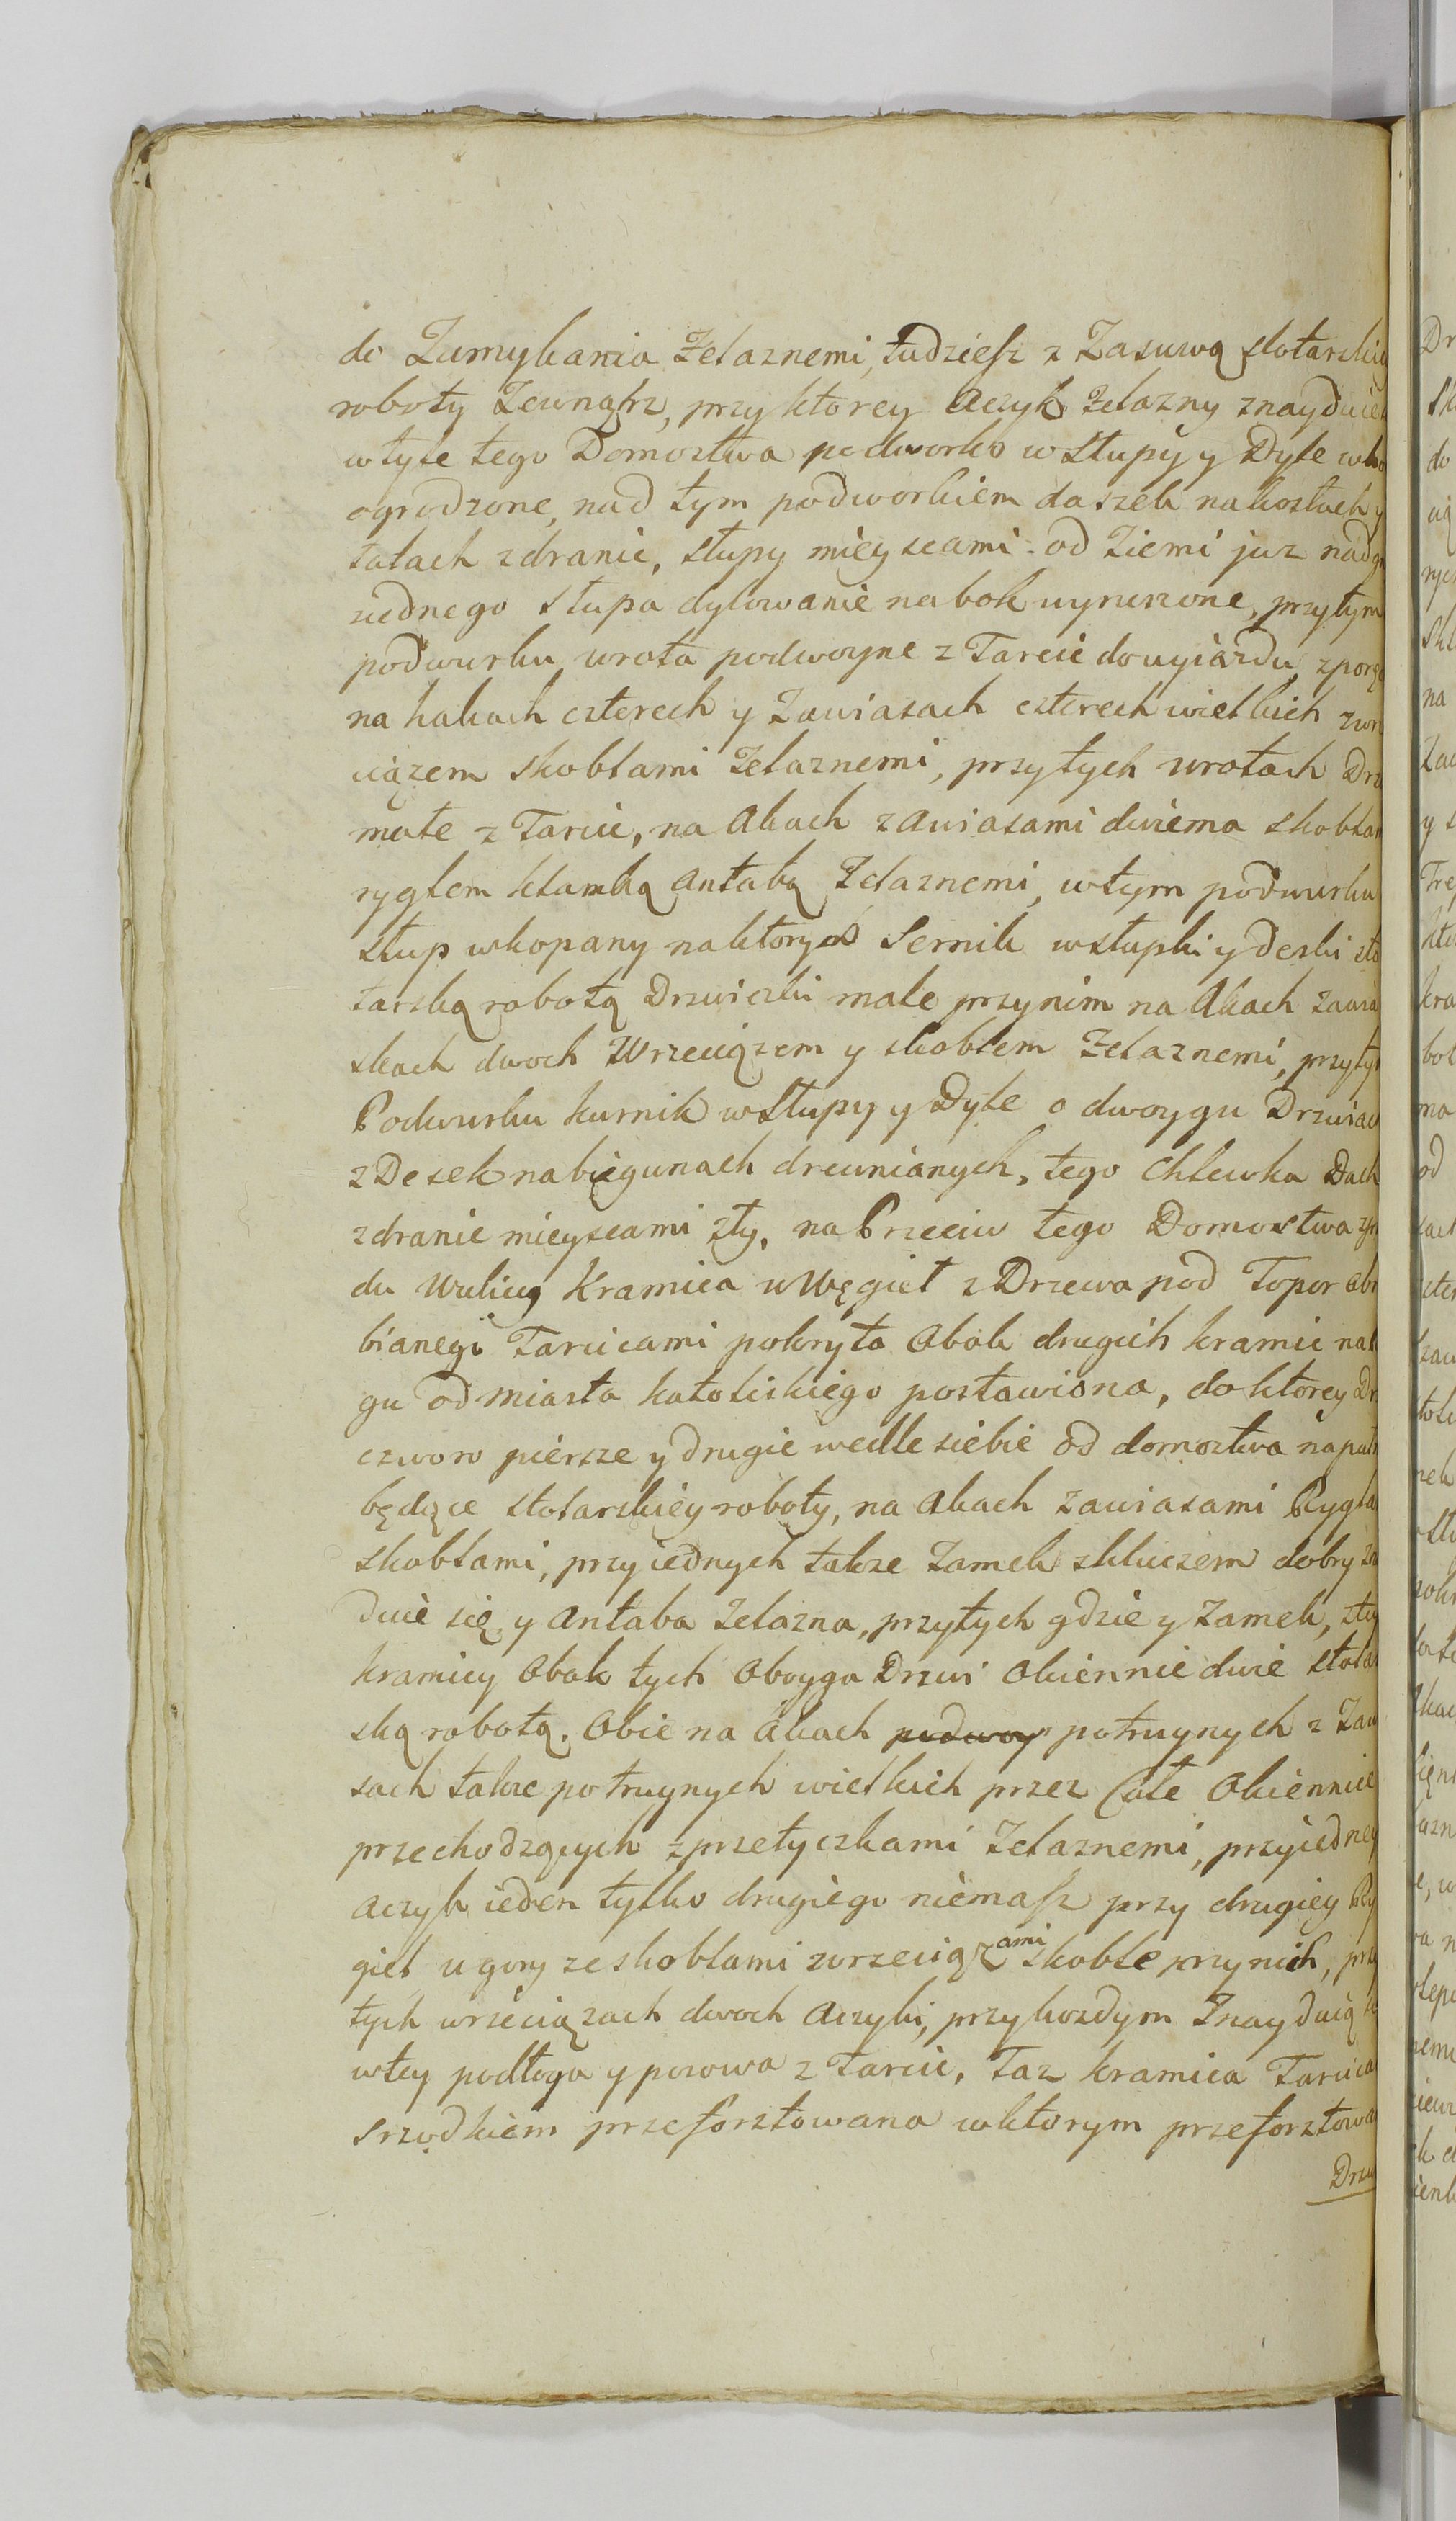 do Zamykania Żelaznemi, tudziesz z Zasuwą stolarskiey
roboty Zewnątrz, przy ktorey aczyk żelazny znayduie
w tyle tego Domostwa podworko w Słupy y Dyle wko
ogrodzone, nad tym podworkiem daszek na kozłach y
łatach z dranic, słupy mieyscami od Ziemi juz nadgn
z iednego słupa dylowanie na bok wyruszone, przytym
podwurku wrota podwoyne z Tarcic do wyiazdu z porę
na hakach czterech y Zawiasach czterech wielkich zwrz
ciązem skoblami żelaznemi, przy tych wrotach Drz
małe z Tarcic, na Akach zawiasami dwiema skoblam
ryglem klamką antabą Żelaznemi, w tym podwurku
słup wkopany na ktorym Sernik w słupki y deski sto
larską robotą Drzwiczki małe przy nim na Akach zawia
skach dwoch Wrzeciązem y skoblem żelaznemi, przy ty
Podwurku kurnik w Słupy y Dyle o dwoygu Drzwiach
z Desek na biegunach drewnianych, tego Chlewka Dach
z dranic mieyscami zły, na Przeciw tego Domostwa
du Wulicy Kramica w Węgieł z Drzewa pod Topor obr
bianego Tarcicami pokryta Obok drugich kramic na
gu od Miasta katolickiego postawiona, do ktorey Dr
czworo piersze y drugie wedle siebie od domostwa na
będące stolarskiey roboty, na Akach zawiasami Rygla
skoblami, przy iednych takze Zamek z kluczem dobry zn
duie się y Antaba Żelazna, przy tych gdzie y Zamek, z tey
kramicy Obok tych Oboyga Drzwi Okiennic dwie stolar
ską robotą. Obie na Akach podwoy potruynych z Zaw
sach takze potruynych wielkich przez Całe Okiennice
przechodzących z przetyczkami Żelaznemi, przy iedney
aczyk ieden tylko drugiego niemasz przy drugiey Ry
giel u gory ze skoblami wrzeciązami skoble przy nich, przy
tych wrzeciązach dwoch aczyki, przy kozdym Znayduią
w tey podłoga y posowa z Tarcic, Taz kramica Tarcica
srzodkiem przeforsztowana w ktorym przeforsztowa
Drzw